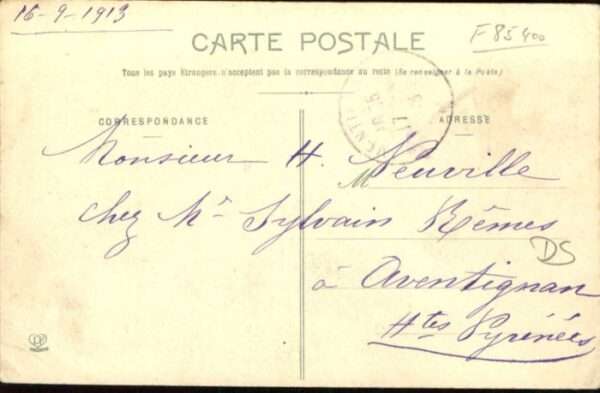 16-9-1913
F 85400
CARTE POSTALE
Tous les pays étrangers n'acceptent pas la correspondance au recto (Se renseigner à la Poste)
CORRESPONDANCE
ADRESSE
Monsieur H. Neuville
M
chez Mr Sylvain Rêmes
DS
à Aventignan
Htes Pyrénées